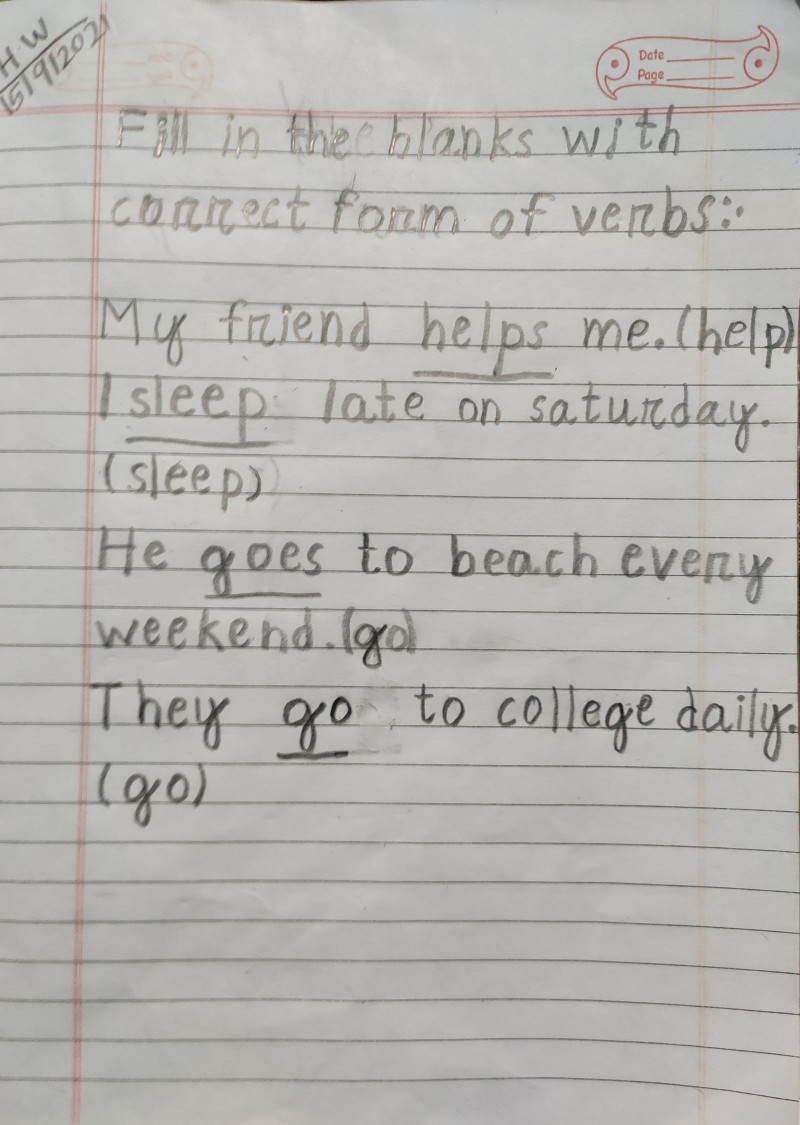 H.W
15/9/2021
Date
Page
Fill in the blanks with
correct form of verbs:-
My friend helps me. (help)
I sleep late on saturday.
(sleep)
He goes to beach every
weekend. (go)
They go to college daily.
(go)